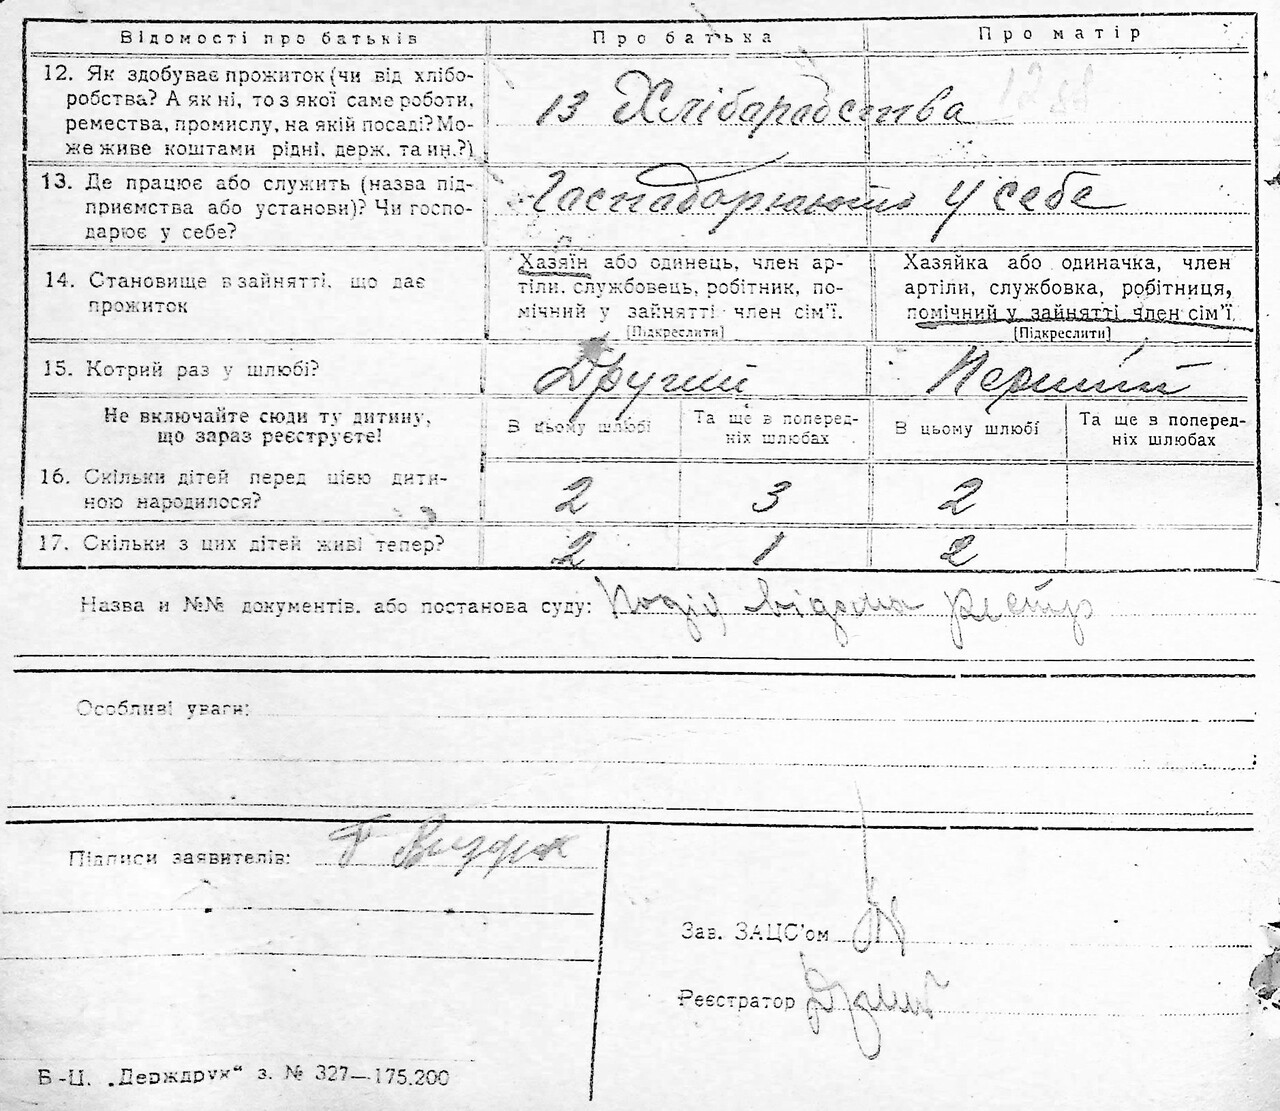 Відомості про батьків Про батька Про матір
12. Як здобуває прожиток (чи від хлібо-
робства? А як ні, то з якої саме роботи,
ремества, промислу, на якій посаді? Мо-
же живе коштами рідні, держ. та ин.?)
13 Хлібарабства
1288
13. Де працює або служить (назва під-
приємства або установи)? Чи госпо-
дарює у себе?
Гаспадорюють у себе
14. Становище в зайнятті, що дає
прожиток
Хазяїн або одинець, член ар-
тіли, службовець, робітник, по-
мічний у зайнятті член сім'ї.
[Підкреслити]
Хазяйка або одиначка, член
артіли, службовка, робітниця,
помічний у зайнятті член сім'ї.
[Підкреслити]
15. Котрий раз у шлюбі? Другий Перший
Не включайте сюди ту дитину,
що зараз реєструєте!
В цьому шлюбі
Та ще в поперед-
ніх шлюбах
В цьому шлюбі
Та ще в поперед-
ніх шлюбах
16. Скільки дітей перед цією дити-
ною народилося?
2 3 2
17. Скільки з цих дітей живі тепер? 2 1 2
Назва и №№ документів, або постанова суду: Подія відома реєстр
Особливі уваги:
Підписи заявителів:
Зав. ЗАЦС'ом
Реєстратор
Б-Ц. „Держдрук“ з. № 327—175.200